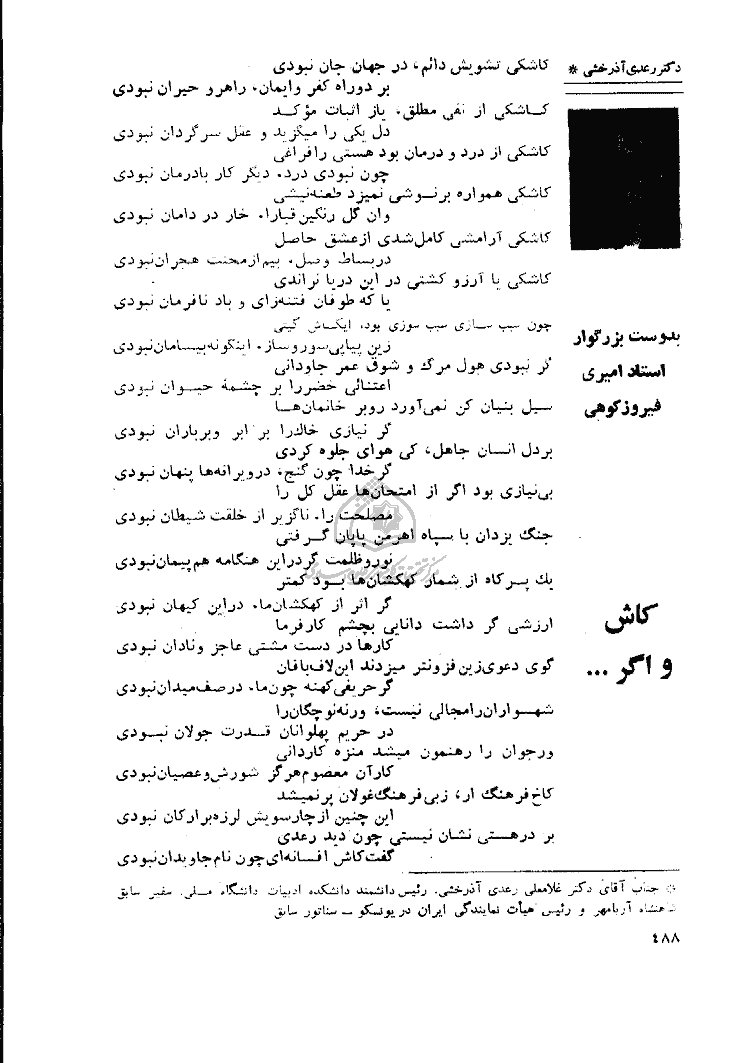 دکتر رعدی آذرخشی *
بدوست بزرگوار
استاد امیری
فیروزکوهی
کاش
و اگر ...
کاشکی تشویش دائم، در جهان جان نبودی
بر دوراه کفر وایمان، راهرو حیران نبودی
کاشکی از نفی مطلق، یاز اثبات مؤکد
دل یکی را میگزید و عقل سرگردان نبودی
کاشکی از درد و درمان بود هستی رافراغی
چون نبودی درد، دیگر کار بادرمان نبودی
کاشکی همواره برنوشی نمیزد طعنه‌نیشی
وان گل رنگین قبارا، خار در دامان نبودی
کاشکی آرامشی کامل‌شدی ازعشق حاصل
دربساط وصل، بیم‌ازمحنت هجران‌نبودی
کاشکی یا آرزو کشتی در این دریا نراندی
یا که طوفان فتنه‌زای و باد نافرمان نبودی
چون سبب سازی سبب سوزی بود، ایکاش گیتی
زین پیاپی‌سوروساز، اینگونه‌بیسامان‌نبودی
گر نبودی هول مرگ و شوق عمر جاودانی
اعتنائی خضررا بر چشمهٔ حیوان نبودی
سیل بنیان کن نمی‌آورد روبر خانمان‌ها
گر نیازی خاک‌را بر ابر وبرباران نبودی
بردل انسان جاهل، کی هوای جلوه کردی
گرخدا چون گنج، درویرانه‌ها پنهان نبودی
بی‌نیازی بود اگر از امتحان‌ها عقل کل را
مصلحت را، ناگزیر از خلقت شیطان نبودی
جنگ یزدان با سپاه اهرمن پایان گرفتی
نوروظلمت گردراین هنگامه هم‌پیمان‌نبودی
یك پرکاه از شمار کهکشان‌ها بود کمتر
گر اثر از کهکشان‌ما، دراین کیهان نبودی
ارزشی گر داشت دانایی بچشم کارفرما
کارها در دست مشتی عاجز ونادان نبودی
گوی دعوی‌زین فزونتر میزدند این‌لاف‌بافان
گرحریفی‌کهنه چون‌ما، درصف‌میدان‌نبودی
شهسواران‌رامجالی نیست، ورنه‌نوچگان‌را
در حریم پهلوانان قدرت جولان نبودی
ورجوان را رهنمون میشد منزه کاردانی
کارآن معصوم‌هرگز شورش‌وعصیان‌نبودی
کاخ‌فرهنگ ار، زبی‌فرهنگ‌غولان پرنمیشد
این چنین ازچارسویش لرزه‌برارکان نبودی
بر درهستی نشان نیستی چون دید رعدی
گفت‌کاش افسانه‌ای‌چون نام‌جاویدان‌نبودی
* جناب آقای دکتر غلامعلی رعدی آذرخشی، رئیس‌دانشمند دانشکده ادبیات دانشگاه ملی، سفیر سابق
شاهنشاه آریامهر و رئیس هیأت نمایندگی ایران در یونسکو ــ سناتور سابق
٤٨٨